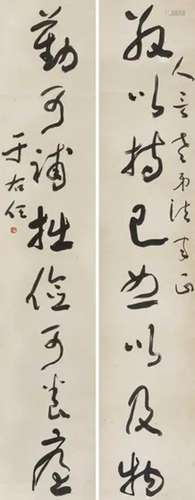 人言老弟法家正
敬以持己恕以及物
勤可補拙儉可養廉
于右任